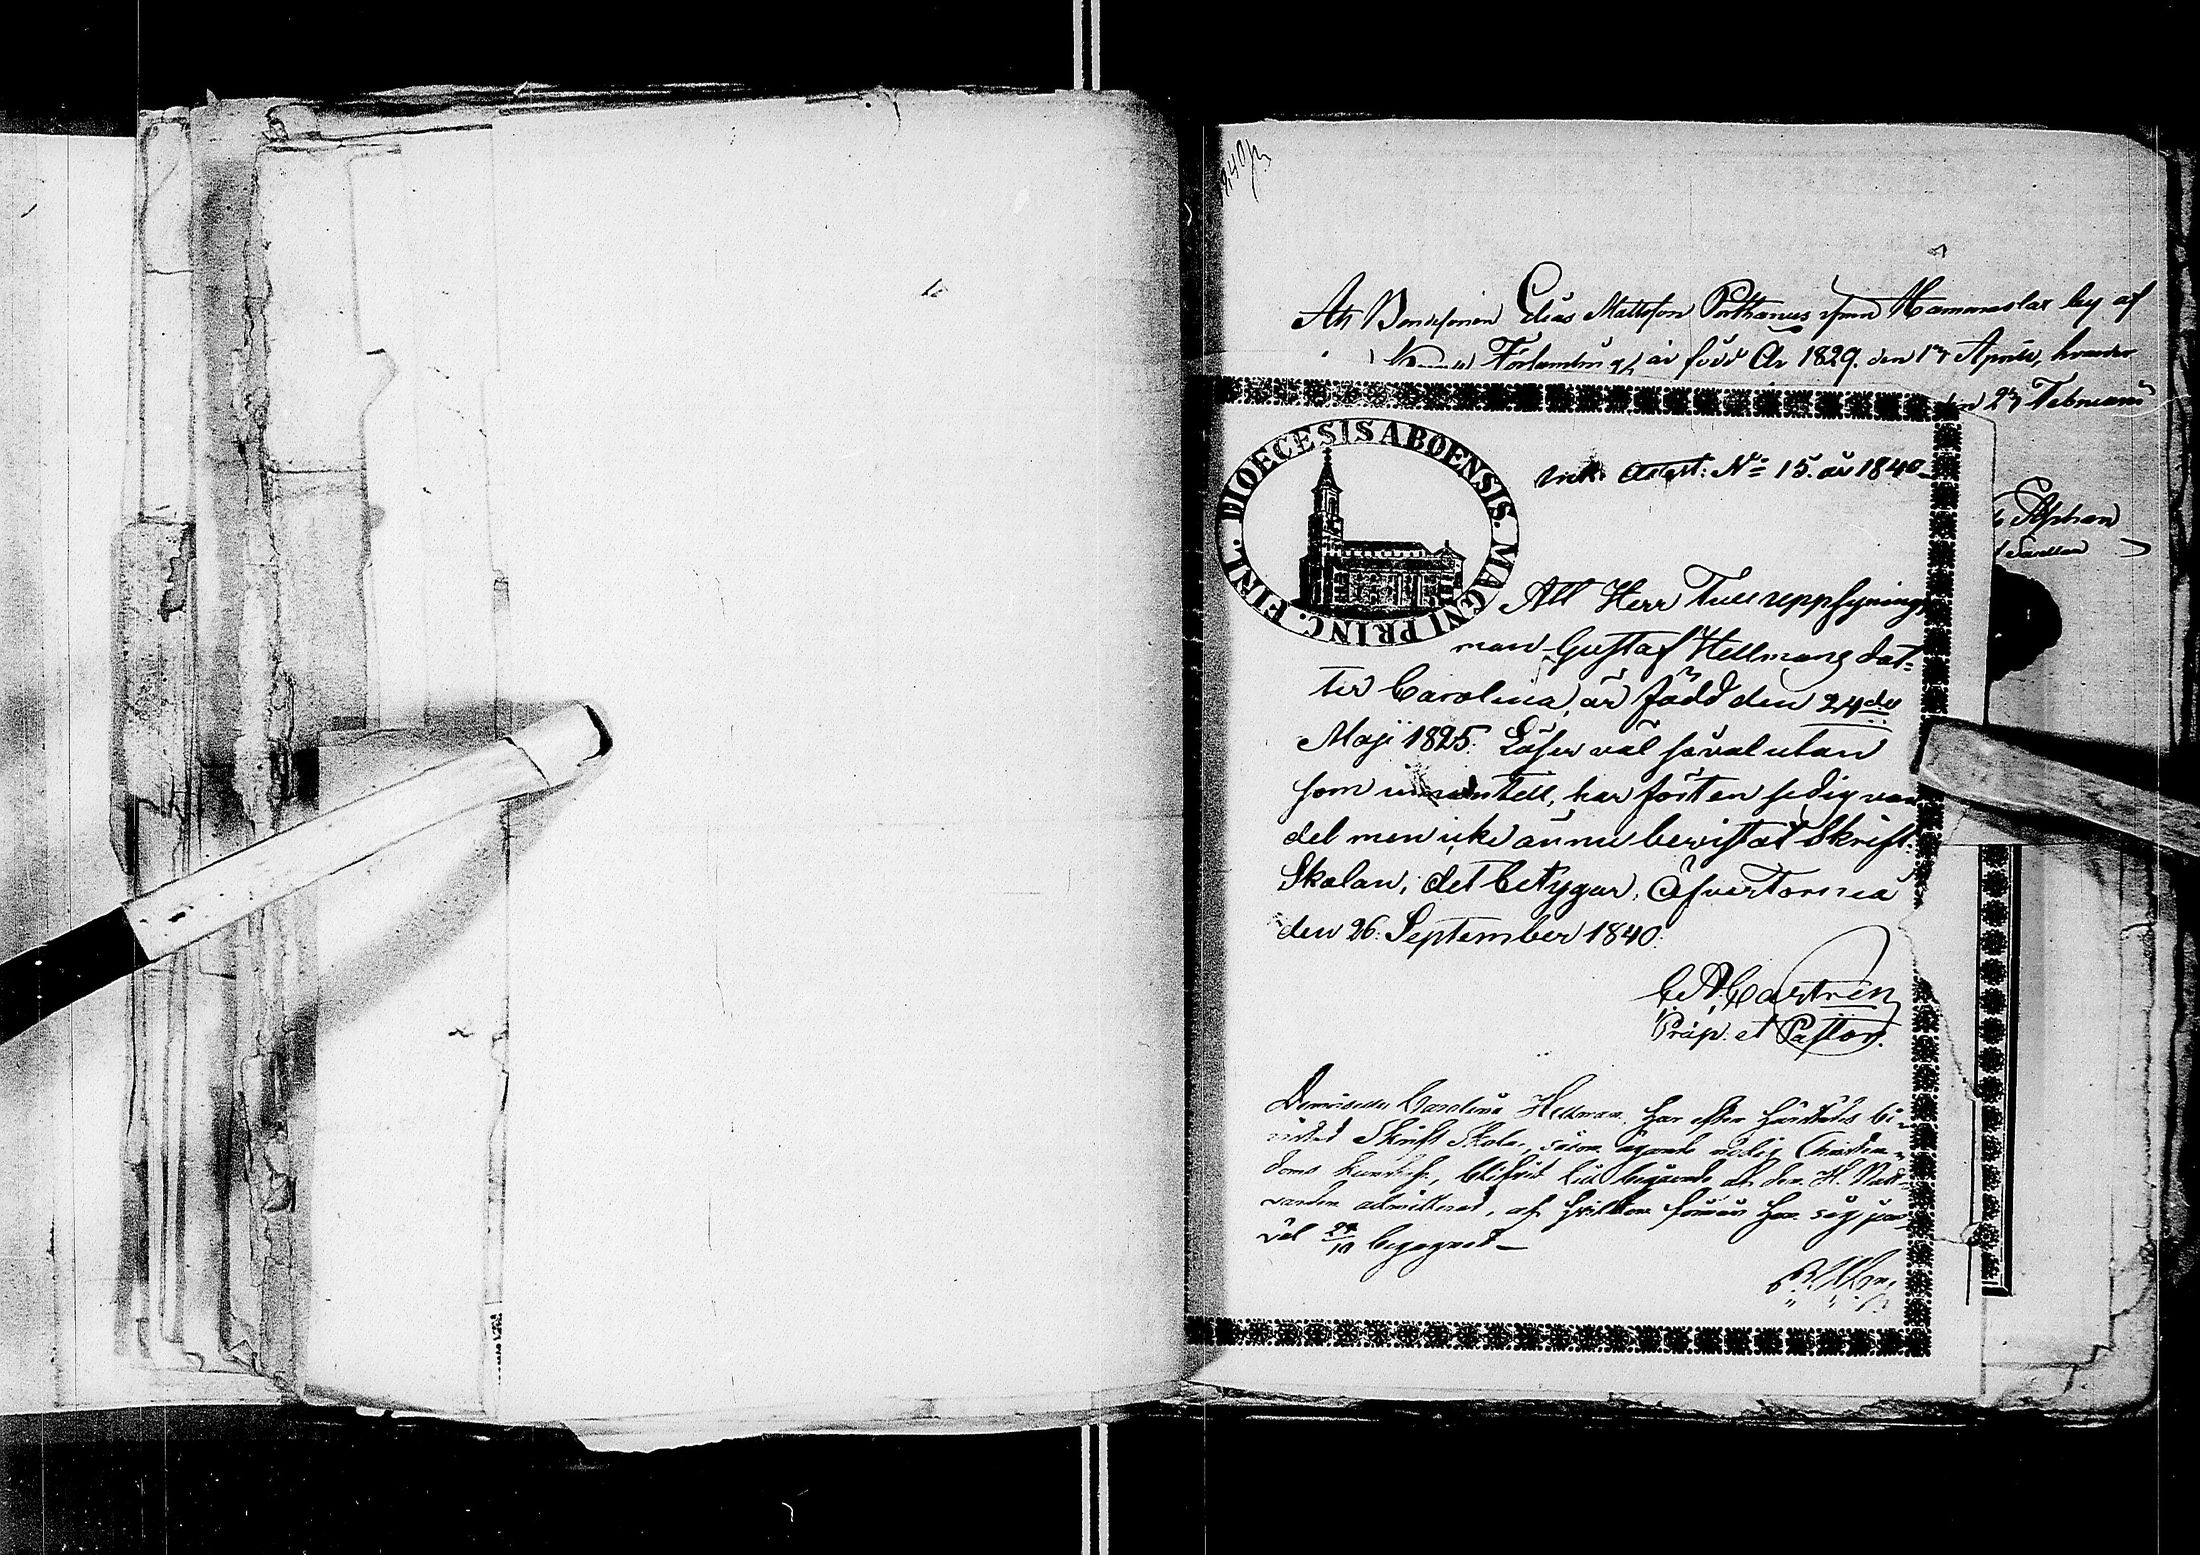 Att Bondesonen Elias Mattsson Porthanus ifrån Hammaslax by af
Församling är född År 1829 den 17 April,
den 27 Februarii
DIOECESIS ABOENSIS. MAGNI PRINC. FINL.
Attest: No 15. år 1840
Att Herr Tulluppsynings
man Gustaf Hellmans dot-
ter Carolina, är född den 24de
Maji 1825. Läser väl såväl utan
som innantill, har fört en sedig van
del men icke ännu bevistat Skrift-
Skolan, det betygar, Öfvertornea
den 26. September 1840.
C A Castrén
Præp. et Pastor.
Demoiselle Carolina Hellman har efter härstädes bi-
vistad Skrift Skola, såsom ägande nödig Christen-
doms kunskap, blifvit till begående af den H. Natt-
varden admitterad, af hvilken förmån hon sig jem
väl 24/10 begagnat